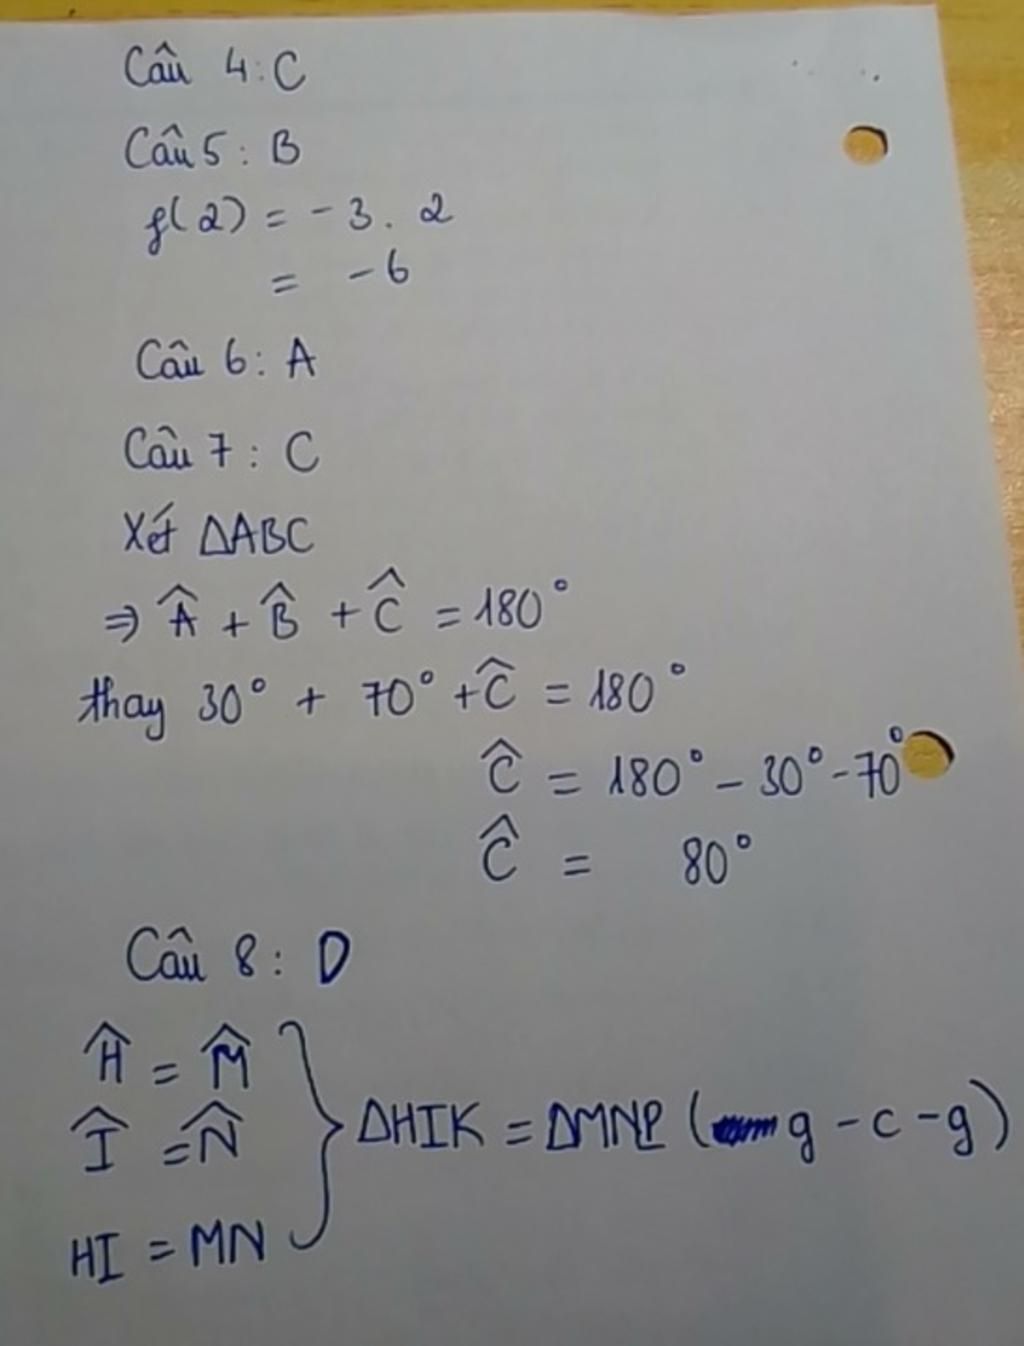 Câu 4: C
Câu 5: B
f(2) = -3. 2
= -6
Câu 6: A
Câu 7: C
Xét ΔABC
⇒ Â + B̂ + Ĉ = 180°
thay 30° + 70° + Ĉ = 180°
Ĉ = 180° - 30° - 70°
Ĉ = 80°
Câu 8: D
Ĥ = M̂
Î = N̂
ΔHIK = ΔMNP (g - c - g)
HI = MN